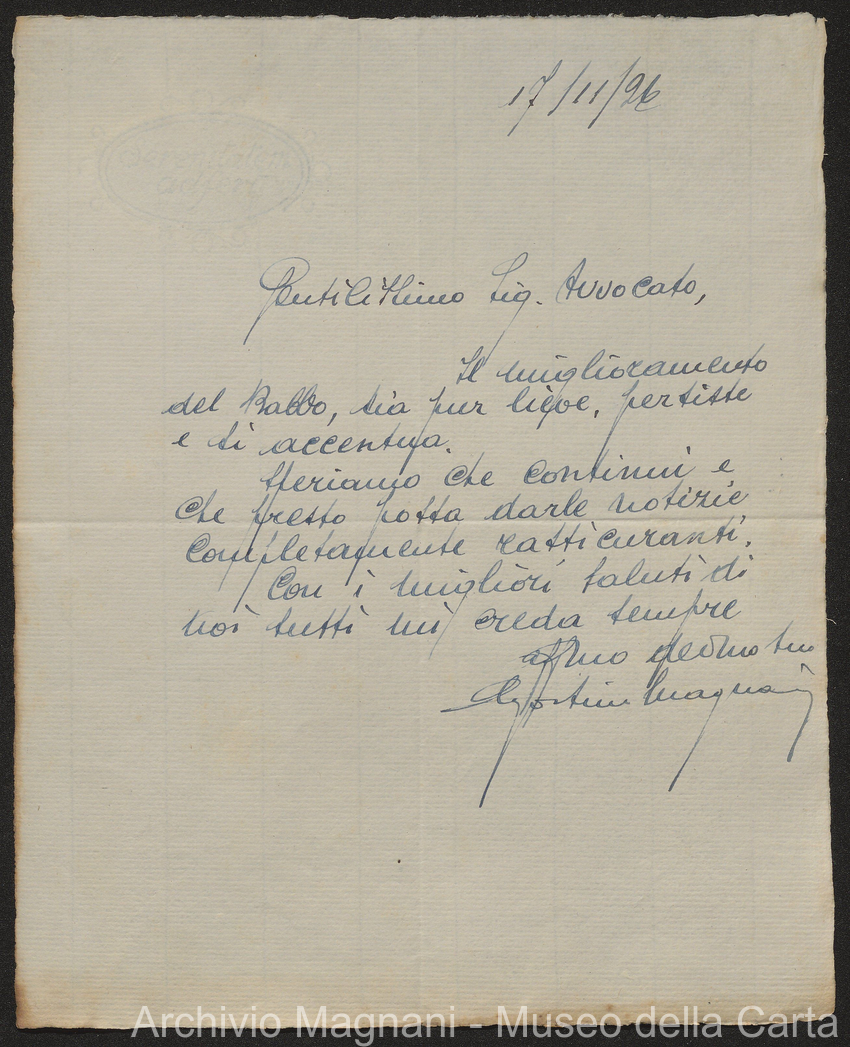 17/11/26
Gentilissimo Sig. Avvocato,
Il miglioramento
del Babbo, sia pur lieve, persiste
e si accentua.
Speriamo che continui e
che presto possa darle notizie
completamente rassicuranti.
Con i migliori saluti di
noi tutti mi creda sempre
affmo devmo suo
Agostino Magnani
Archivio Magnani - Museo della Carta